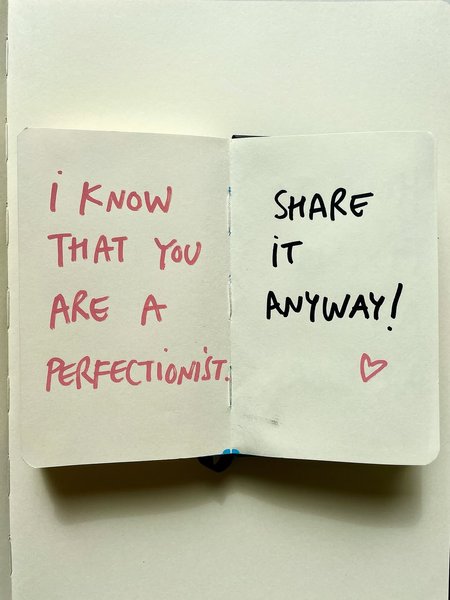 i KNOW
THAT YOU
ARE A
PERFECTiONiST.
SHARE
iT
ANYWAY!